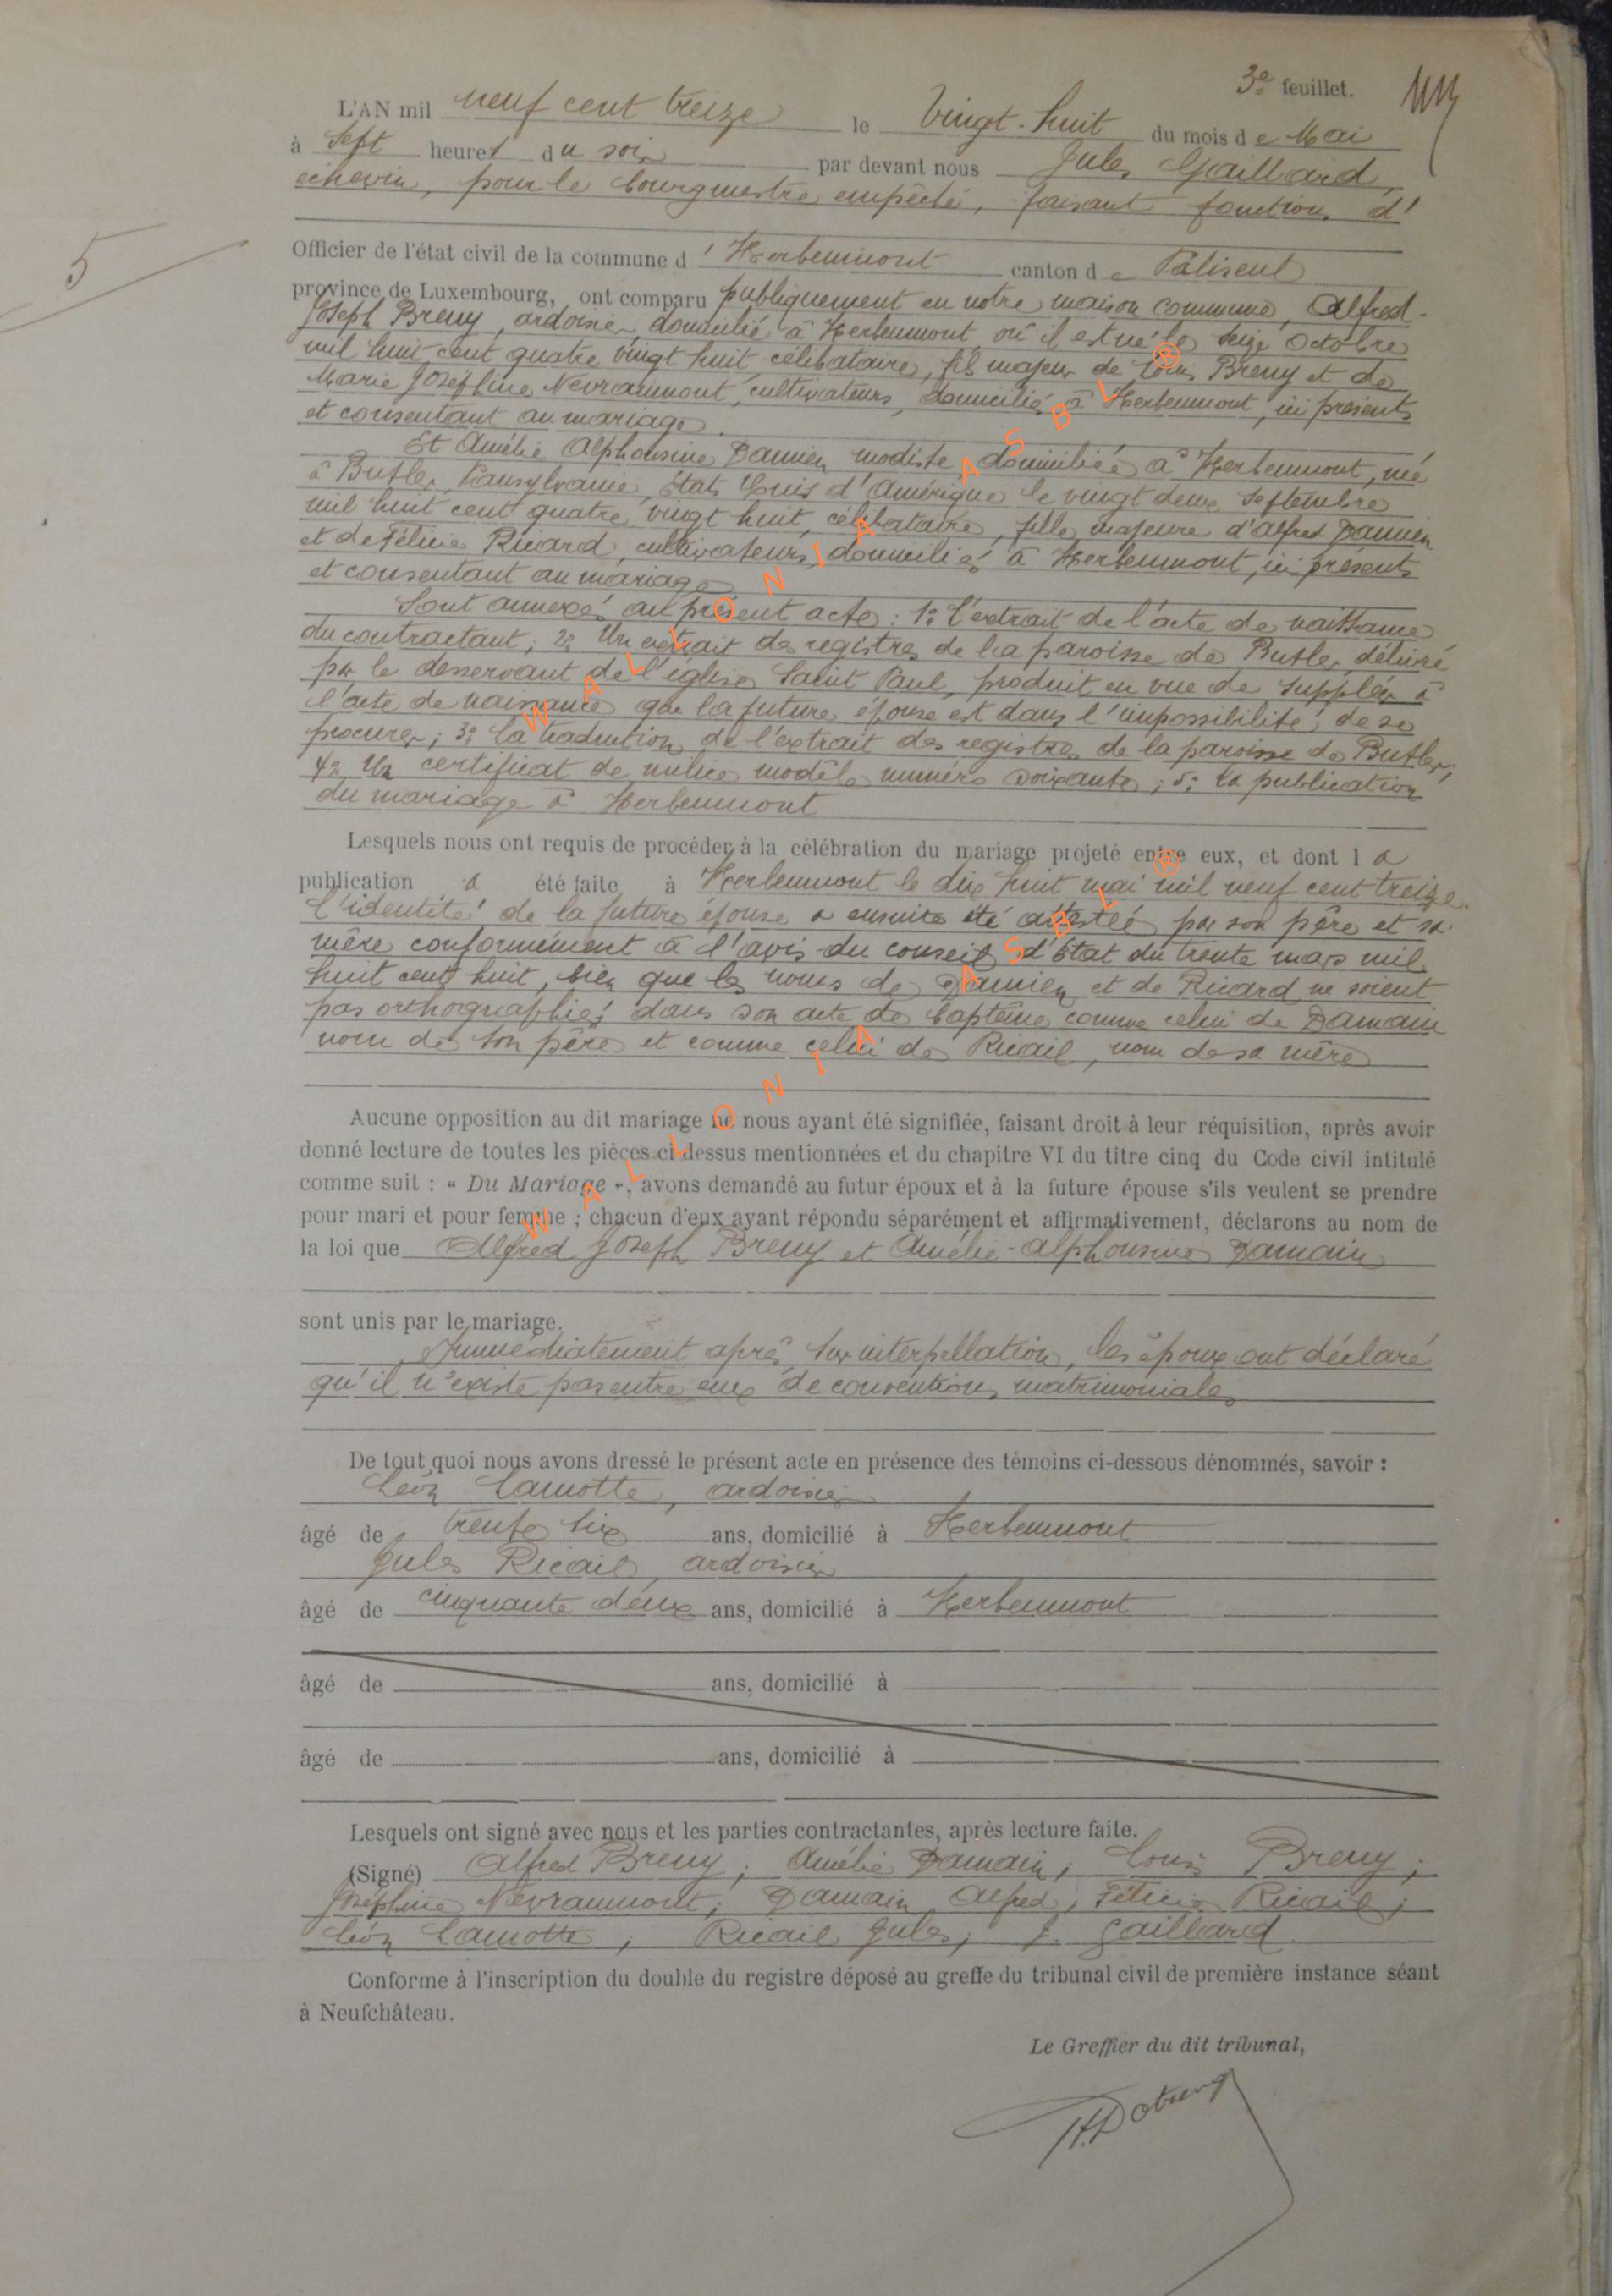 3e feuillet.
L'AN mil neuf cent treize le Vingt-huit du mois de Mai
à sept heures du soir par devant nous Jules Gaillard,
échevin, pour le bourgmestre empêché, faisant fonctions d'
5
Officier de l'état civil de la commune d'Herbeumont canton de Paliseul
province de Luxembourg, ont comparu publiquement en notre maison commune, Alfred-
Joseph Breny, ardoisier, domicilié à Herbeumont, où il est né le seize Octobre
mil huit cent quatre vingt huit, célibataire, fils majeur de Louis Breny et de
Marie Joséphine Nevraumont, cultivateurs, domiciliés à Herbeumont, ici présents
et consentant au mariage.
Et Amélie Alphonsine Damien modiste, domiciliée à Herbeumont, née
à Butler, Pansylvanie, États Unis d'Amérique le vingt deux Septembre
mil huit cent quatre vingt huit, célibataire, fille majeure d'Alfred Damien
et de Félicie Ricard, cultivateurs, domiciliés à Herbeumont, ici présents
et consentant au mariage
Sont annexés au présent acte : 1° l'extrait de l'acte de naissance
du contractant ; 2° Un extrait des registres de la paroisse de Butler, délivré
par le desservant de l'église Saint Paul, produit en vue de suppléer à
l'acte de naissance que la future épouse est dans l'impossibilité de se
procurer ; 3° la traduction de l'extrait des registres de la paroisse de Butler,
4° Un certificat de milice modèle numéro soixante ; 5° la publication
du mariage à Herbeumont
Lesquels nous ont requis de procéder à la célébration du mariage projeté entre eux, et dont la
publication a été faite à Herbeumont le dix huit mai mil neuf cent treize.
L'identité de la future épouse a ensuite été attestée par son père et sa
mère conformément à l'avis du conseil d'État du trente mars mil
huit cent huit, bien que les noms de Damien et de Ricard ne soient
pas orthographiés dans son acte de baptême comme celui de Damain
nom de son père et comme celui de Ricail, nom de sa mère
Aucune opposition au dit mariage ne nous ayant été signifiée, faisant droit à leur réquisition, après avoir
donné lecture de toutes les pièces ci-dessus mentionnées et du chapitre VI du titre cinq du Code civil intitulé
comme suit : « Du Mariage », avons demandé au futur époux et à la future épouse s'ils veulent se prendre
pour mari et pour femme ; chacun d'eux ayant répondu séparément et affirmativement, déclarons au nom de
la loi que Alfred Joseph Breny et Amélie-Alphonsine Damain
sont unis par le mariage.
Immédiatement après, sur interpellation, les époux ont déclaré
qu'il n'existe pas entre eux de conventions matrimoniales
De tout quoi nous avons dressé le présent acte en présence des témoins ci-dessous dénommés, savoir :
Léon Lamotte, ardoisier
âgé de trente six ans, domicilié à Herbeumont
Jules Ricail, ardoisier
âgé de cinquante deux ans, domicilié à Herbeumont
âgé de ans, domicilié à
âgé de ans, domicilié à
Lesquels ont signé avec nous et les parties contractantes, après lecture faite.
(Signé) Alfred Breny ; Amélie Damain ; Louis Breny ;
Joséphine Nevraumont ; Damain Alfred ; Félicie Ricail ;
Léon Lamotte ; Ricail Jules ; J. Gaillard.
Conforme à l'inscription du double du registre déposé au greffe du tribunal civil de première instance séant
à Neufchâteau.
Le Greffier du dit tribunal,
WALLONIA ASBL ®
WALLONIA ASBL ®